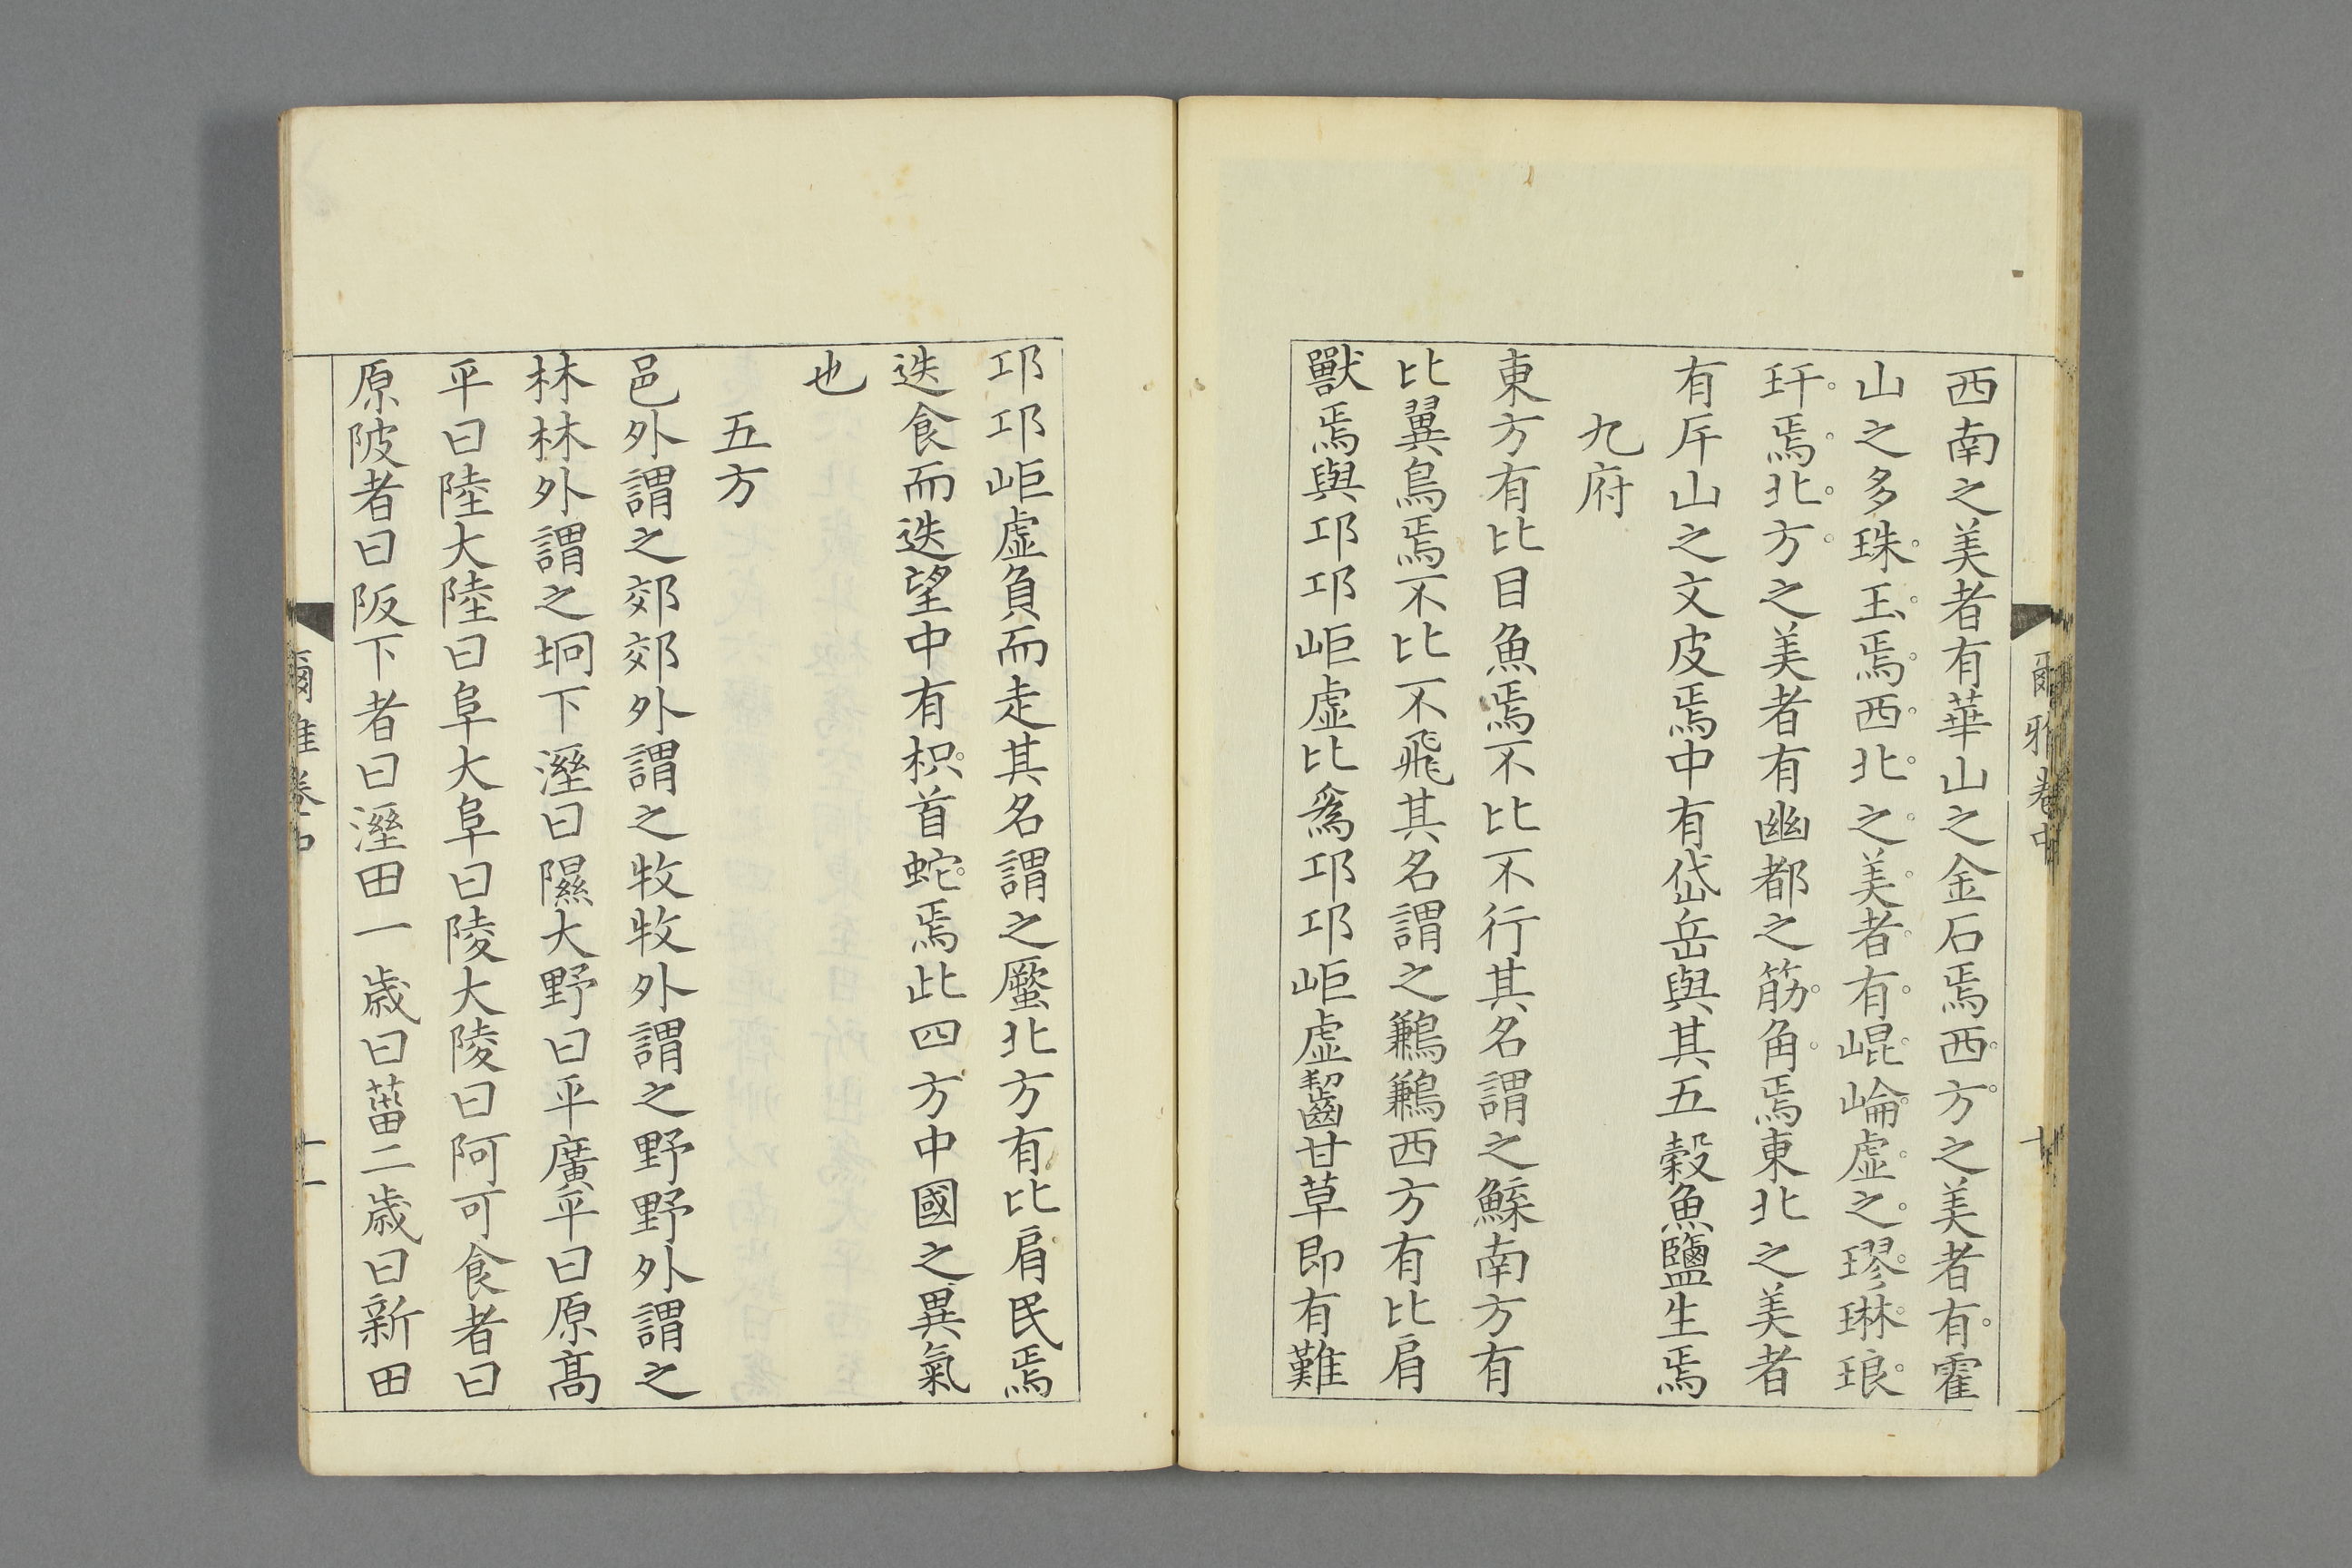 爾雅卷中 十
西南之美者有華山之金石焉西方之美者有霍
山之多珠玉焉西北之美者有崐崘虛之璆琳琅
玕焉北方之美者有幽都之筋角焉東北之美者
有斥山之文皮焉中有岱岳與其五穀魚鹽生焉
九府
東方有比目魚焉不比不行其名謂之鰈南方有
比翼鳥焉不比不飛其名謂之鶼鶼西方有比肩
獸焉與邛邛岠虛比爲邛邛岠虛齧甘草即有難
邛邛岠虛負而走其名謂之蟨北方有比肩民焉
迭食而迭望中有枳首蛇焉此四方中國之異氣
也
五方
邑外謂之郊郊外謂之牧牧外謂之野野外謂之
林林外謂之坰下溼曰隰大野曰平廣平曰原高
平曰陸大陸曰阜大阜曰陵大陵曰阿可食者曰
原陂者曰阪下者曰溼田一歲曰菑二歲曰新田
爾雅卷中 十一